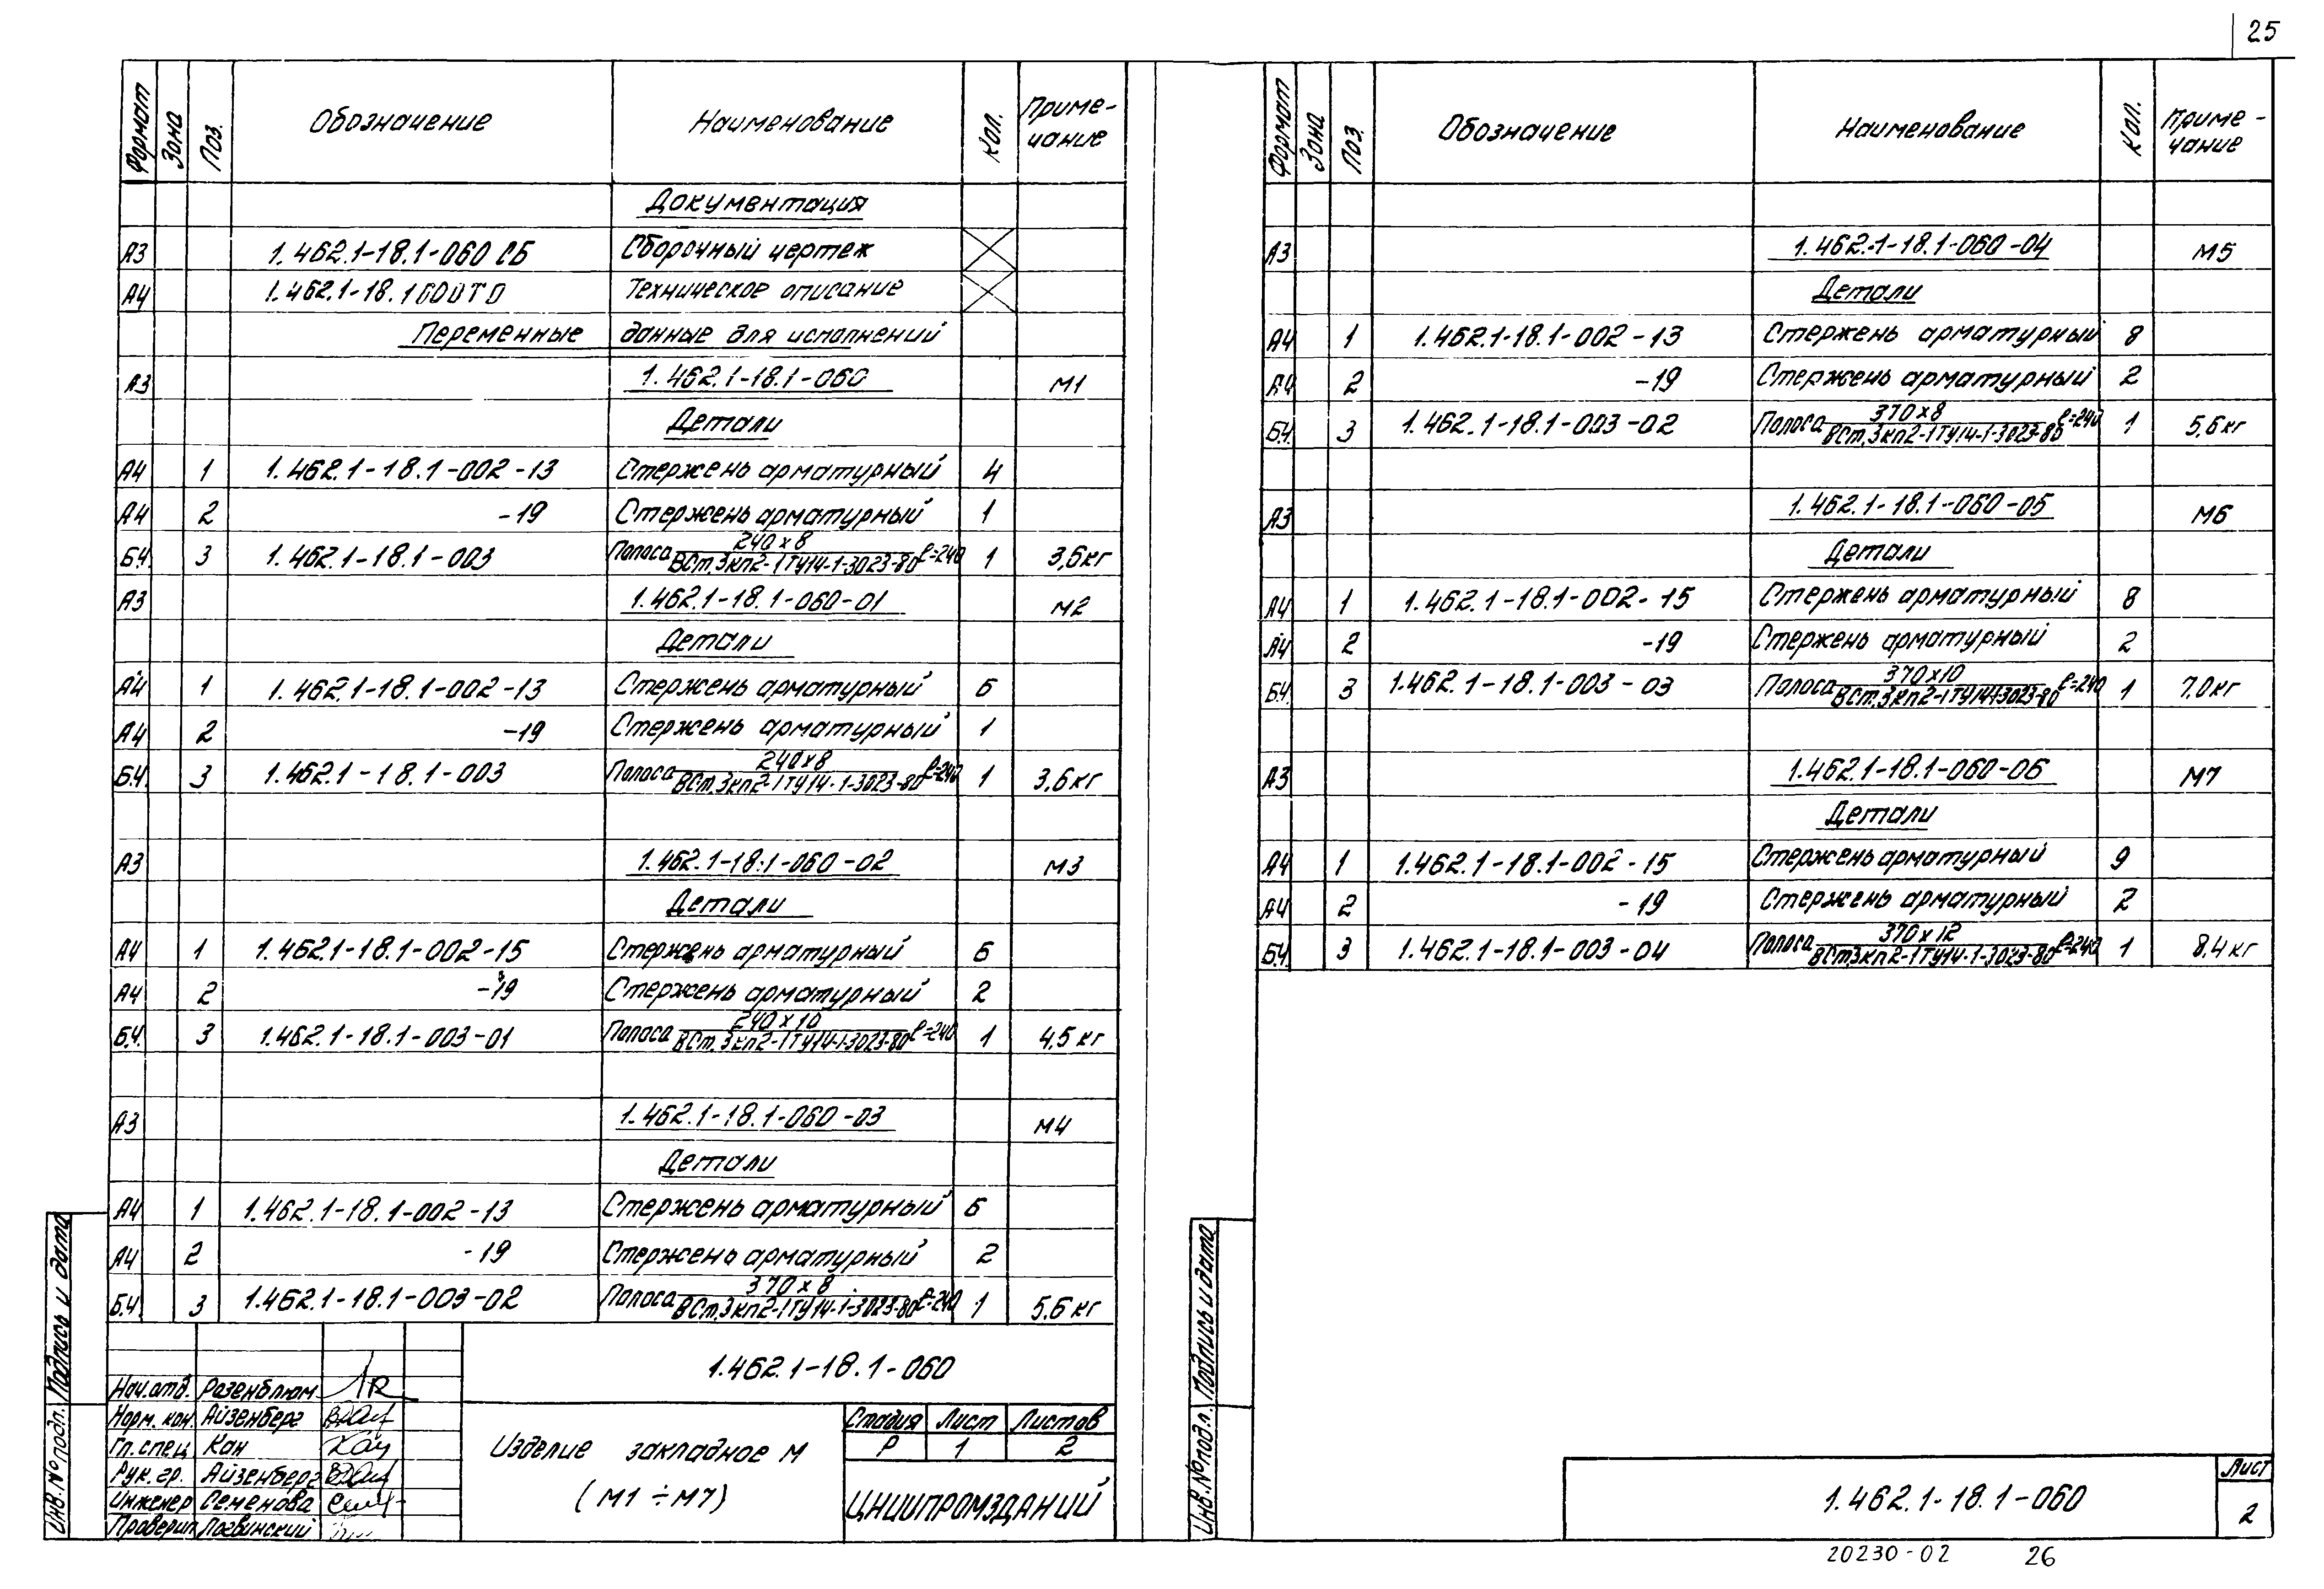 25
Формат Зона Поз. Обозначение Наименование Кол. Примечание
Документация
А3 1.462.1-18.1-060 СБ Сборочный чертеж
А4 1.462.1-18.1 Техническое описание
Переменные данные для исполнений
А3 1.462.1-18.1-060 М1
Детали
А4 1 1.462.1-18.1-002-13 Стержень арматурный 4
А4 2 -19 Стержень арматурный 1
Б.4. 3 1.462.1-18.1-003 Полоса 240х8 / ВСт.3кп2-1ТУ14-1-3023-80 ℓ=240 1 3,6кг
А3 1.462.1-18.1-060-01 М2
Детали
А4 1 1.462.1-18.1-002-13 Стержень арматурный 6
А4 2 -19 Стержень арматурный 1
Б.4. 3 1.462.1-18.1-003 Полоса 240х8 / ВСт.3кп2-1ТУ14-1-3023-80 ℓ=240 1 3,6кг
А3 1.462.1-18.1-060-02 М3
Детали
А4 1 1.462.1-18.1-002-15 Стержень арматурный 6
А4 2 -19 Стержень арматурный 2
Б.4. 3 1.462.1-18.1-003-01 Полоса 240х10 / ВСт.3кп2-1ТУ14-1-3023-80 ℓ=240 1 4,5 кг
А3 1.462.1-18.1-060-03 М4
Детали
А4 1 1.462.1-18.1-002-13 Стержень арматурный 6
А4 2 -19 Стержень арматурный 2
Б.4. 3 1.462.1-18.1-003-02 Полоса 370х8 / ВСт.3кп2-1ТУ14-1-3023-80 ℓ=240 1 5,6 кг
1.462.1-18.1-060
Нач.отд. Розенблюм
Норм. кон. Айзенберг
Гл.спец Кан
Рук.гр. Айзенберг
Инженер Семенова
Проверил Логвинский
Изделие закладное М
(М1÷М7)
Стадия Лист Листов
Р 1 2
ЦНИИПРОМЗДАНИЙ
Инв.№подл. Подпись и дата
Формат Зона Поз. Обозначение Наименование Кол. Примечание
А3 1.462.1-18.1-060-04 М5
Детали
А4 1 1.462.1-18.1-002-13 Стержень арматурный 8
А4 2 -19 Стержень арматурный 2
Б.4. 3 1.462.1-18.1-003-02 Полоса 370х8 / ВСт.3кп2-1ТУ14-1-3023-80 ℓ=240 1 5,6кг
А3 1.462.1-18.1-060-05 М6
Детали
А4 1 1.462.1-18.1-002-15 Стержень арматурный 8
А4 2 -19 Стержень арматурный 2
Б.4. 3 1.462.1-18.1-003-03 Полоса 370х10 / ВСт.3кп2-1ТУ14-1-3023-80 ℓ=240 1 7,0кг
А3 1.462.1-18.1-060-06 М7
Детали
А4 1 1.462.1-18.1-002-15 Стержень арматурный 9
А4 2 -19 Стержень арматурный 2
Б.4. 3 1.462.1-18.1-003-04 Полоса 370х12 / ВСт.3кп2-1ТУ14-1-3023-80 ℓ=240 1 8,4кг
Инв.№подл. Подпись и дата
1.462.1-18.1-060
Лист
2
20230-02 26